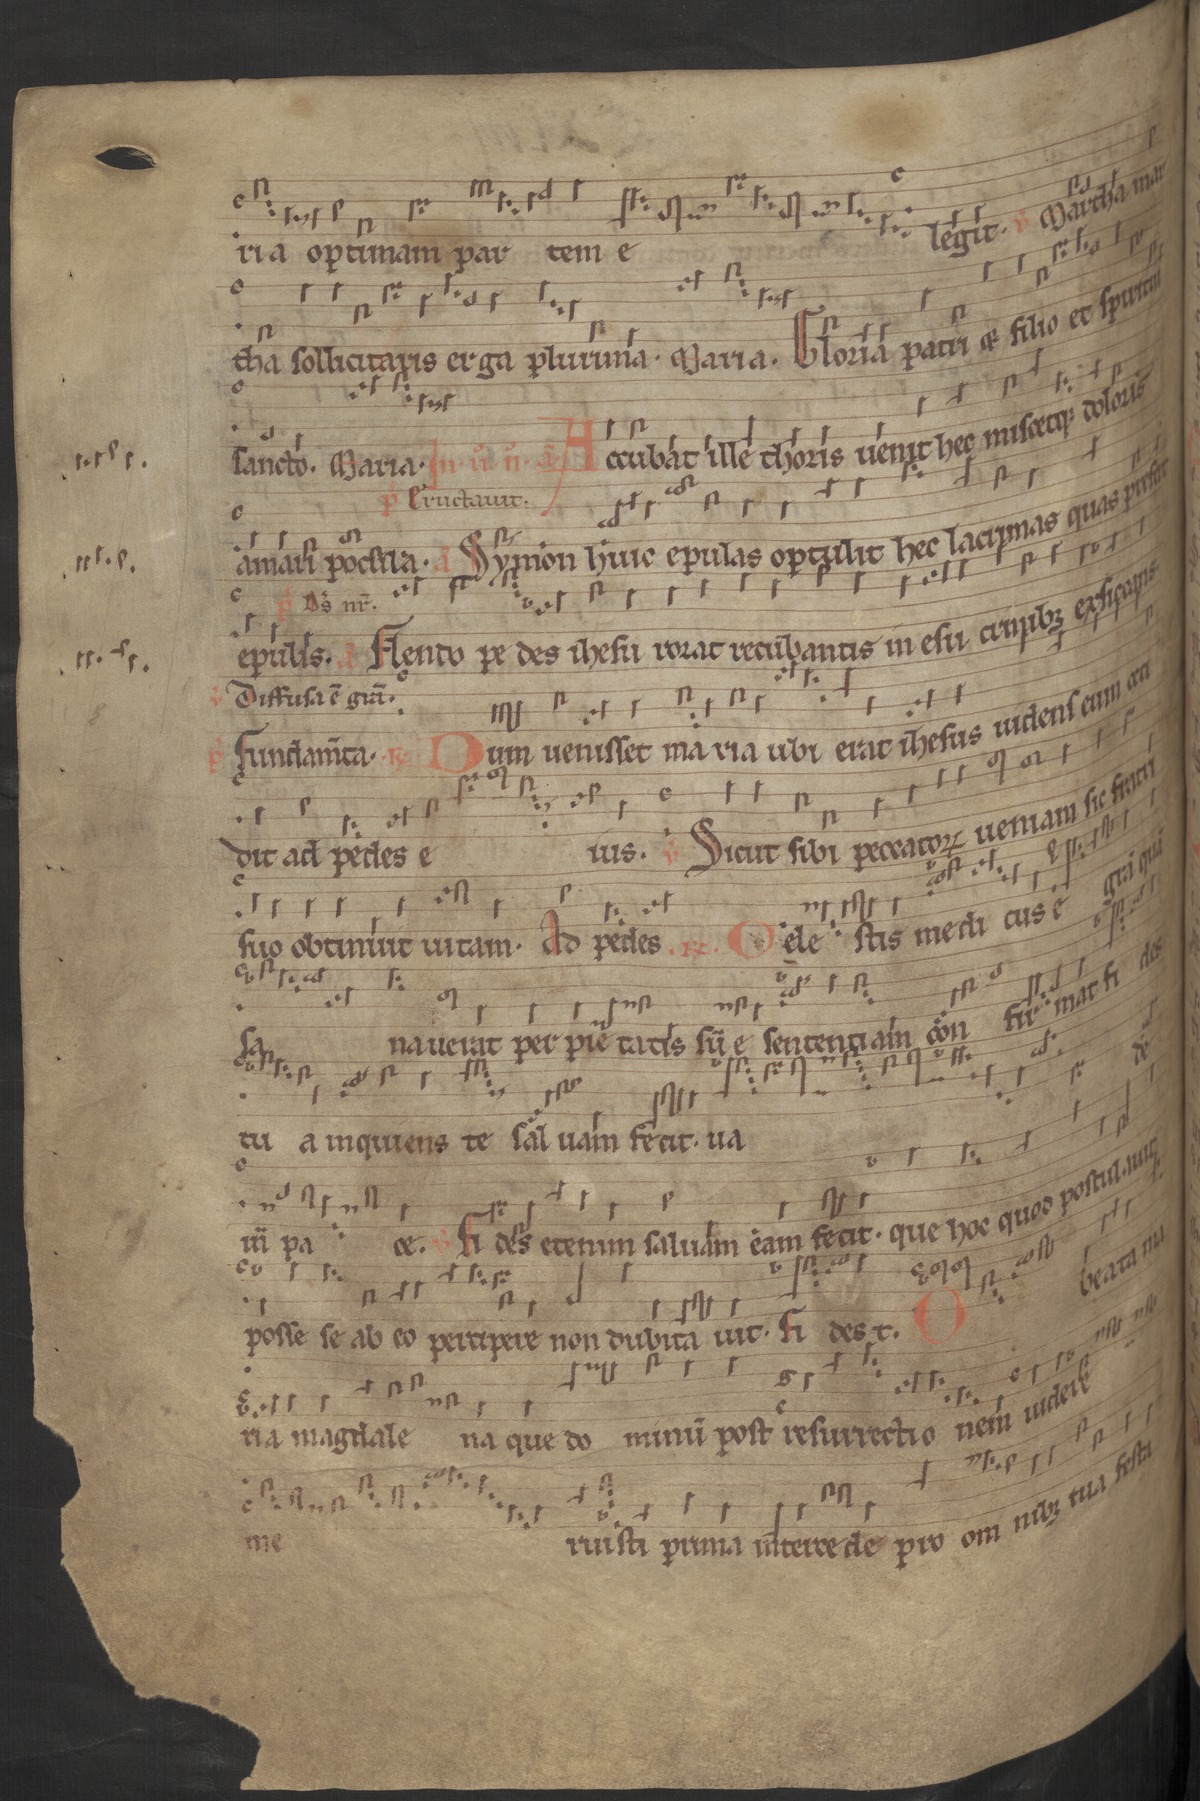 ria optimam par tem e legit. v Martha mar
tha sollicitaris erga plurima. Maria. Gloria patri et filio et spiritui
sancto. Maria. In .ii. n. a Accubat ille thoris uenit hec miscetq; doloris
p Eructauit.
amari pocula. a Symon huic epulas optulit hec lacrimas quas prefert
p D̄s nr̄.
epulis. a Flendo pe des ihesu rorat recubantis in esu crinibꝫ exsiccans.
v Diffusa ē grā.
p Fundam̄ta. R Dum uenisset ma ria ubi erat ihesus uidens eum ceci
dit ad pedes e ius. v Sicut sibi peccatoꝝ ueniam sic fratri
suo obtinuit uitam. Ad pedes. R. Cele stis medi cus e grā qui
sa nauerat per pie tatis sū e sentenciam con fir mat fi des
tu a inquiens te sal uam fecit. ua de
in̄ pa ce. v Fi des etenim saluam eam fecit. que hoc quod postulauit
posse se ab eo percipere non dubita uit. Fi des t. O beata ma
ria magdale na que do minū post resurrectio nem uidere
me ruisti prima intercede pro om nibꝫ tua festi